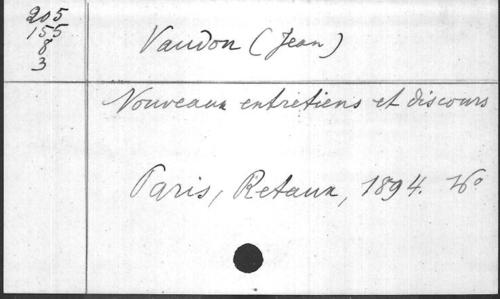 205
155
8
3
Vaudon (Jean)
Nouveaux entretiens et discours
Paris, Retaux, 1894.